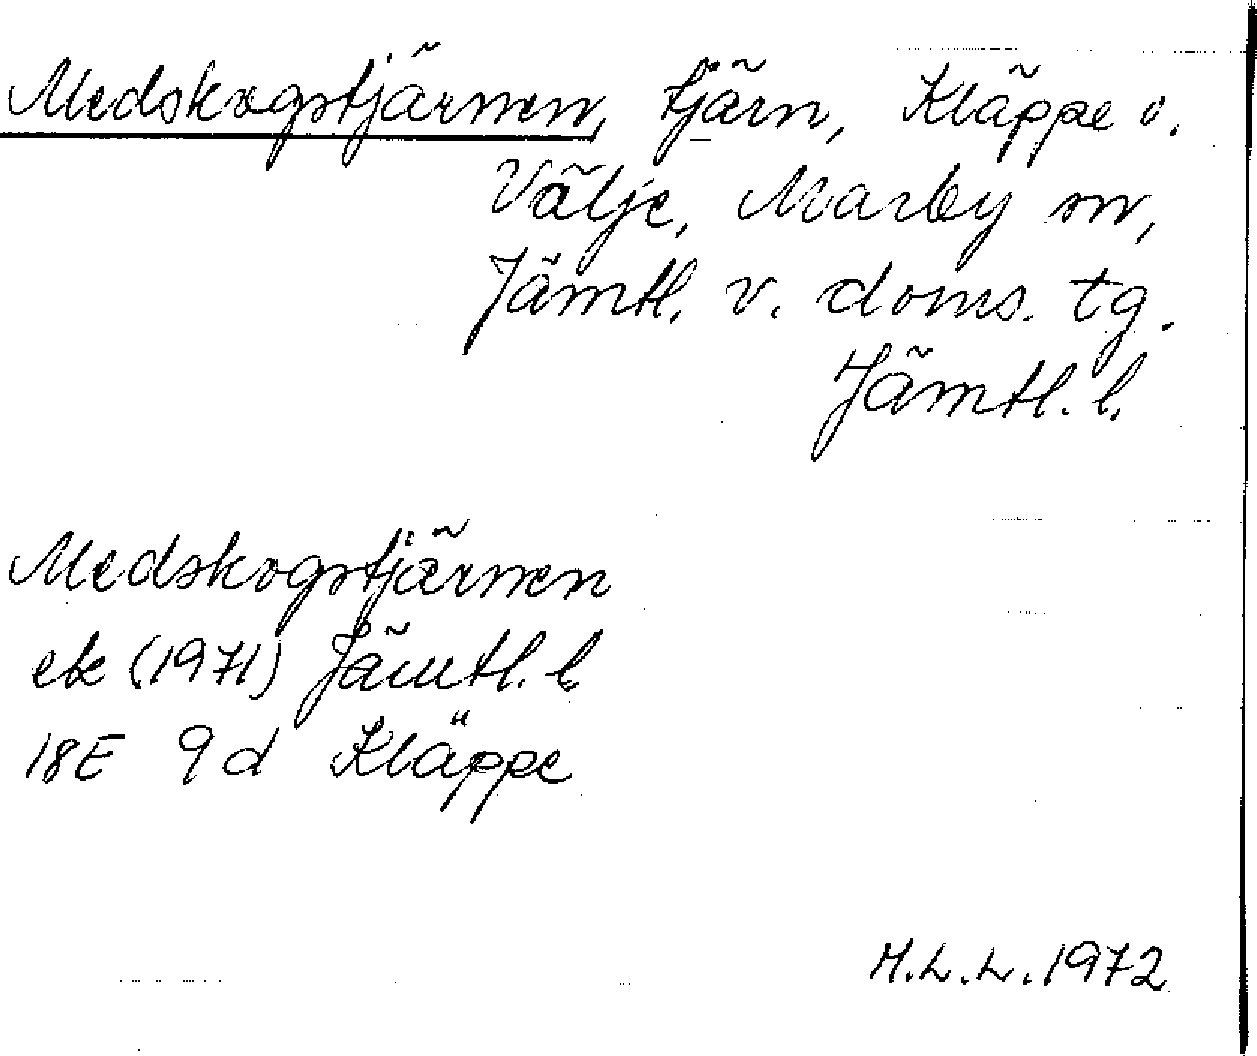 Medskogstjärnen, tjärn, Kläppe o.
Välje, Marby sn,
Jämtl. v. doms. tg.
Jämtl. l.
Medskogstjärnen
ek (1971) Jämtl. l.
18E 9d Kläppe
M.L.L. 1972